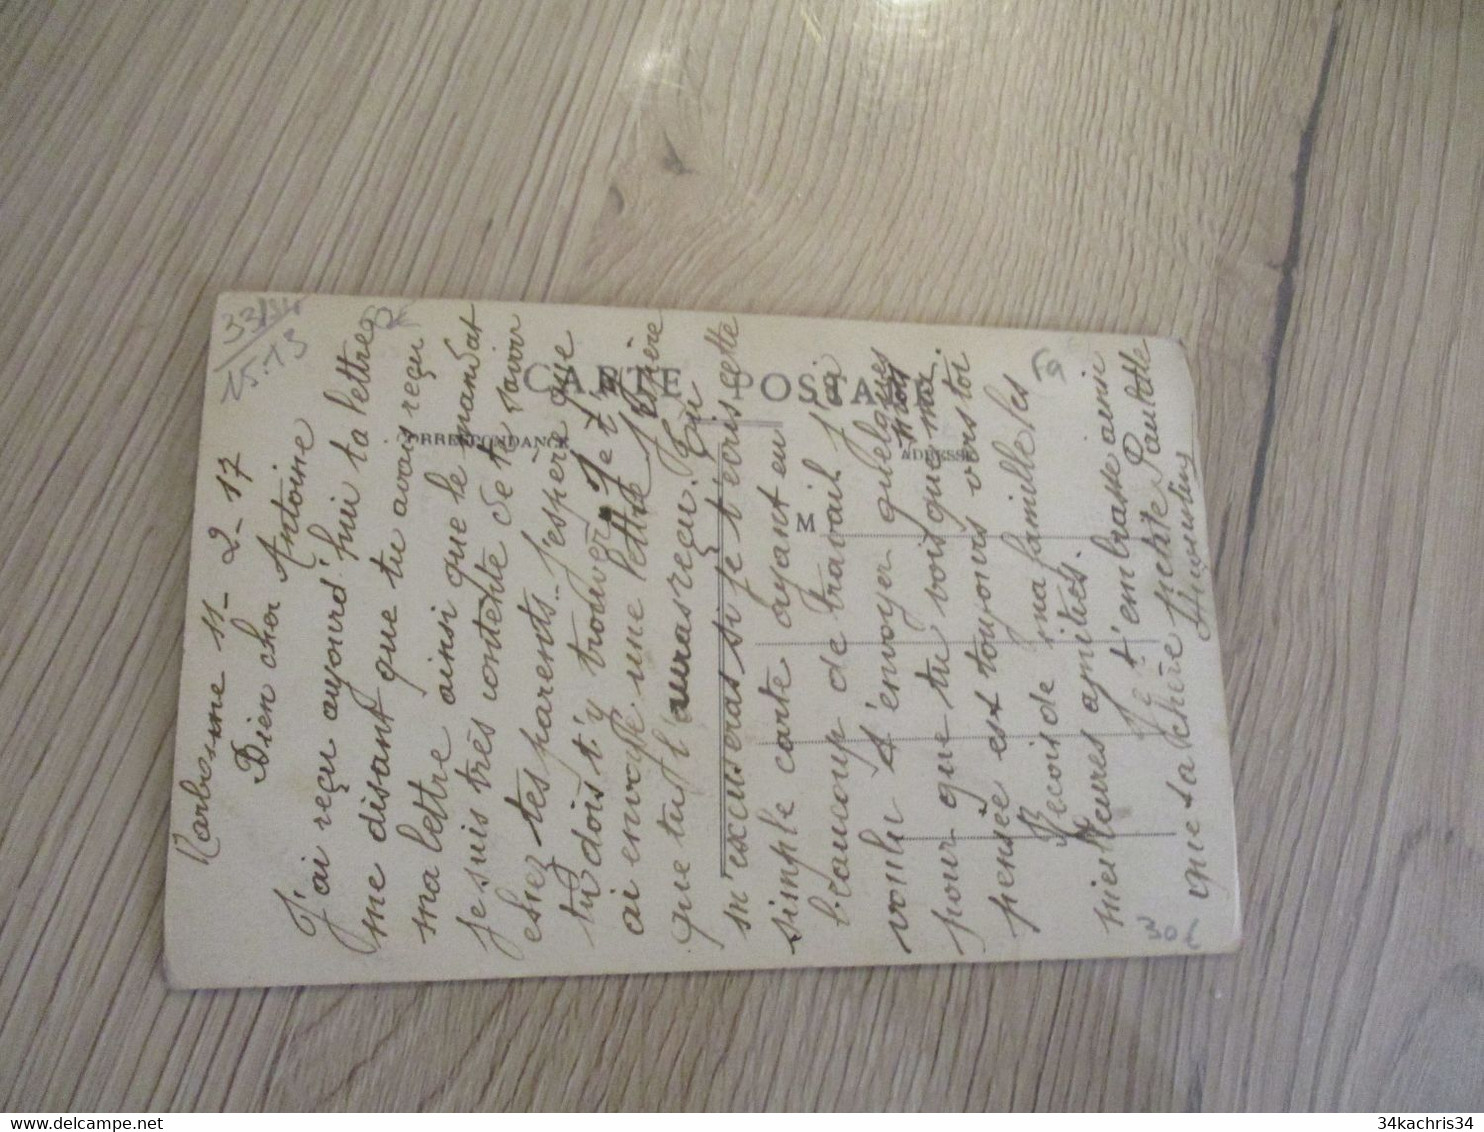 CARTE POSTALE
CORRESPONDANCE
ADRESSE
M
Narbonne 11-2-17
Bien cher Antoine
J'ai reçu aujourd'hui ta lettre
me disant que tu avais reçu
ma lettre ainsi que le mandat
je suis très contente de te savoir
chez tes parents - j'espère que
tu dois t'y trouver. Je t'
ai envoyé une lettre
que tu l'auras reçu. Tu
m'excuseras si je t'écris cette
simple carte ayant eu
beaucoup de travail j'ai
voulu t'envoyer quelques mots
pour que tu vois que ma
pensée est toujours vers toi.
Reçois de ma famille les
meilleures amitiés.
Je t'embrasse ainsi
que ta chère petite Paulette
15.13
30 €
34kachris34
delcampe.net